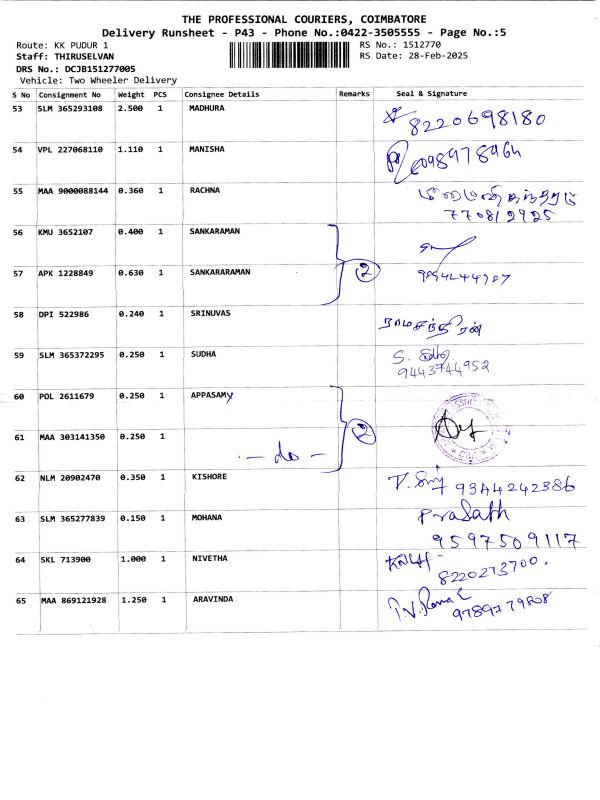 THE PROFESSIONAL COURIERS, COIMBATORE
Delivery Runsheet - P43 - Phone No.:0422-3505555 - Page No.:5
Route: KK PUDUR 1 RS No.: 1512770
Staff: THIRUSELVAN RS Date: 28-Feb-2025
DRS No.: DCJB151277005
Vehicle: Two Wheeler Delivery
S No Consignment No Weight PCS Consignee Details Remarks Seal & Signature
53 SLM 365293108 2.500 1 MADHURA
8220698180
54 VPL 227068110 1.110 1 MANISHA
55 MAA 9000088144 0.360 1 RACHNA
770812925
56 KMU 3652107 0.400 1 SANKARAMAN
2
57 APK 1228849 0.630 1 SANKARARAMAN
58 DPI 522986 0.240 1 SRINUVAS
ராமசந்திரன்
59 SLM 365372295 0.250 1 SUDHA S.
9443744952
60 POL 2611679 0.250 1 APPASAMY
2
61 MAA 303141350 0.250 1
- do -
62 NLM 20902470 0.350 1 KISHORE
9344242386
63 SLM 365277839 0.150 1 MOHANA Prasath
9597509117
64 SKL 713900 1.000 1 NIVETHA
8220273700.
65 MAA 869121928 1.250 1 ARAVINDA
9789779808